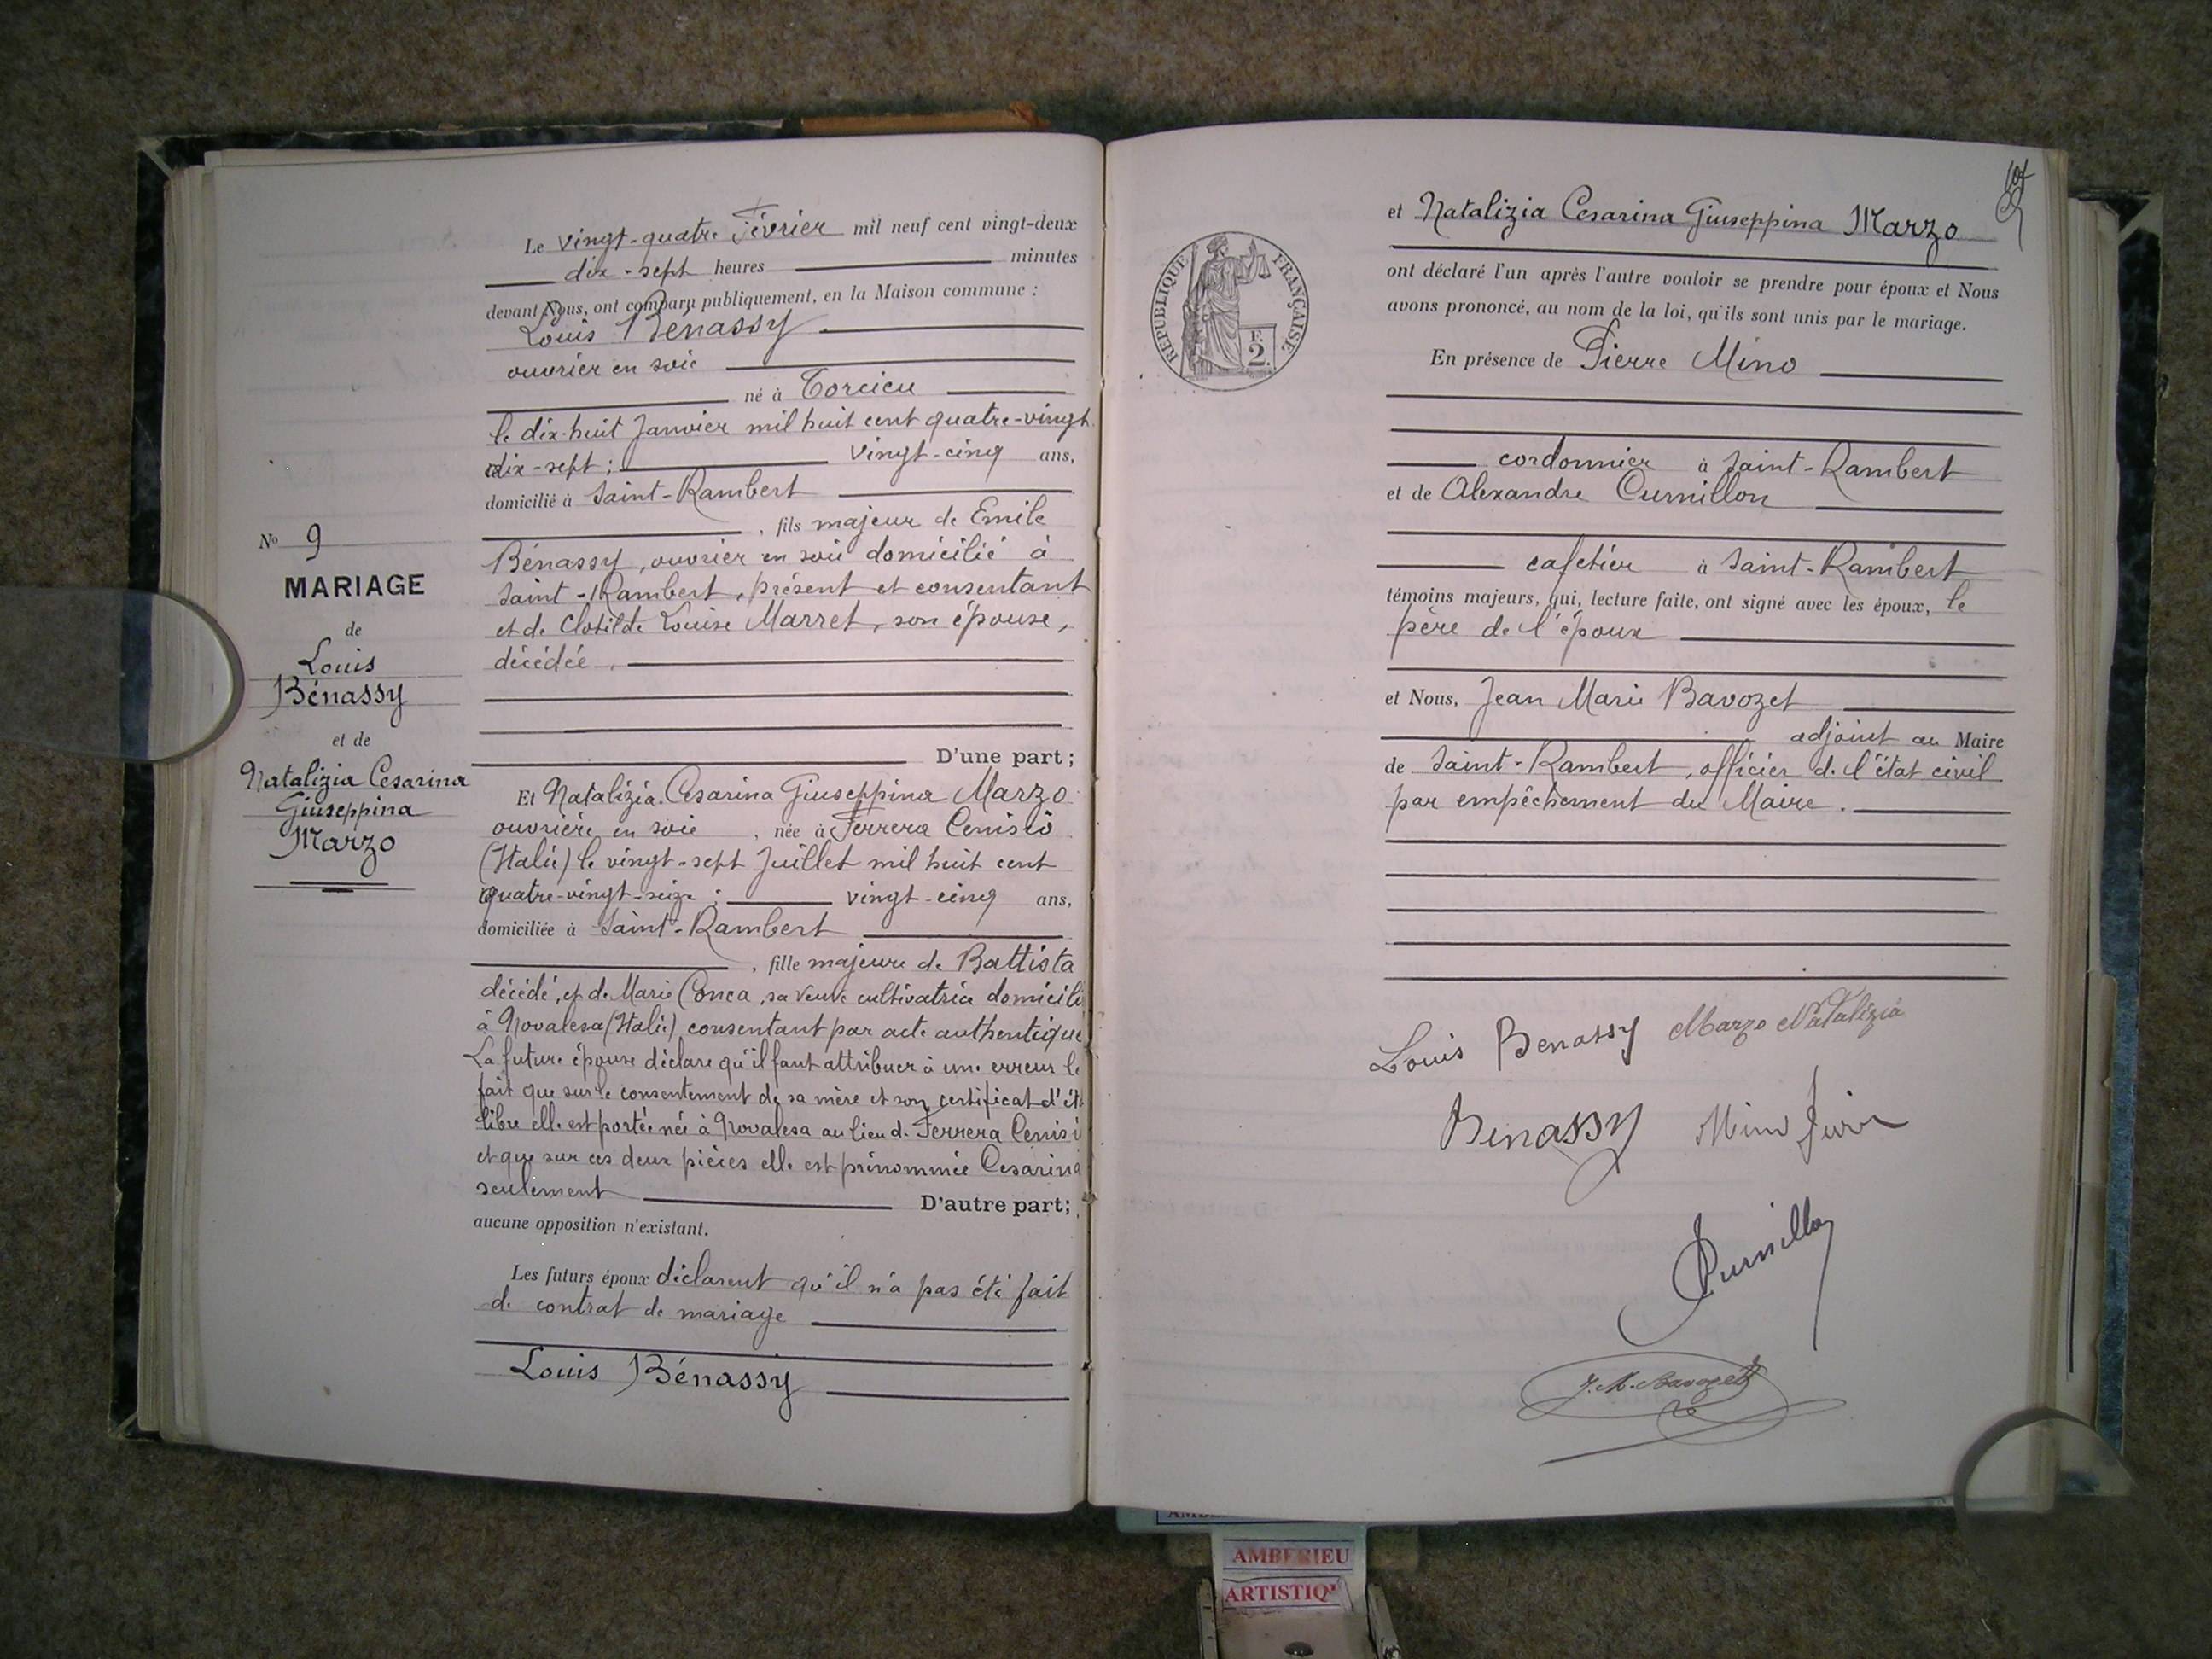 Le vingt-quatre Février mil neuf cent vingt-deux
dix-sept heures minutes
devant Nous, ont comparu publiquement, en la Maison commune :
Louis Bénassy
ouvrier en soie
né à Torcieu
le dix-huit Janvier mil huit cent quatre-vingt
dix-sept ; vingt-cinq ans,
domicilié à Saint-Rambert
, fils majeur de Emile
Bénassy, ouvrier en soie domicilié à
Saint-Rambert, présent et consentant
et de Clotilde Louise Marret, son épouse,
décédée.
D'une part ;
Et Natalizia Cesarina Giuseppina Marzo
ouvrière en soie, née à Ferrera Cenisio
(Italie) le vingt-sept Juillet mil huit cent
quatre-vingt-seize ; vingt-cinq ans,
domiciliée à Saint-Rambert
, fille majeure de Battista
décédé, et de Marie Conca, sa veuve cultivatrice domicili
à Novalesa (Italie) consentant par acte authentique
La future épouse déclare qu'il faut attribuer à une erreur le
fait que sur le consentement de sa mère et son certificat d'ét
libre elle est portée née à Novalesa au lieu de Ferrera Cenisi
et que sur ces deux pièces elle est prénommée Cesarina
seulement D'autre part ;
aucune opposition n'existant.
Les futurs époux déclarent qu'il n'a pas été fait
de contrat de mariage
Louis Bénassy
No 9
MARIAGE
de
Louis
Bénassy
et de
Natalizia Cesarina
Giuseppina
Marzo
et Natalizia Cesarina Giuseppina Marzo
ont déclaré l'un après l'autre vouloir se prendre pour époux et Nous
avons prononcé, au nom de la loi, qu'ils sont unis par le mariage.
En présence de Pierre Mino
cordonnier à Saint-Rambert
et de Alexandre Curnillon
cafetier à Saint-Rambert
témoins majeurs, qui, lecture faite, ont signé avec les époux, le
père de l'époux
et Nous, Jean Marie Bavozet
adjoint au Maire
de Saint-Rambert, officier de l'état civil
par empêchement du Maire.
REPUBLIQUE FRANÇAISE
F.
2.
Louis Benassy Marzo Natalizia
Benassy Mino
Curnillon
J. M. Bavozet
AMBERIEU
ARTISTIQ